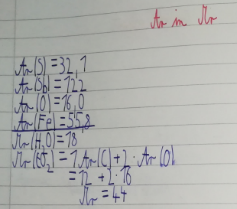 Ar in Mr
Ar(S)=32,1
Ar(Sb)=122
Ar(O)=16,0
Ar(Fe)=55,8
Mr(H₂O)=18
Mr(CO₂)=1 Ar(C)+2·Ar(O)
=12+2·16
Mr=44